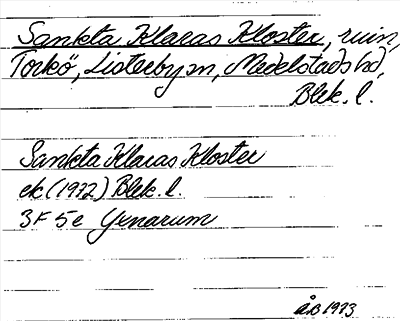 Sankta Klaras Kloster, ruin,
Torkö, Listerby sn, Medelstads hd,
Blek. l.
Sankta Klaras Kloster
ek (1972) Blek. l.
3F 5e Yenarum
ÅB 1973